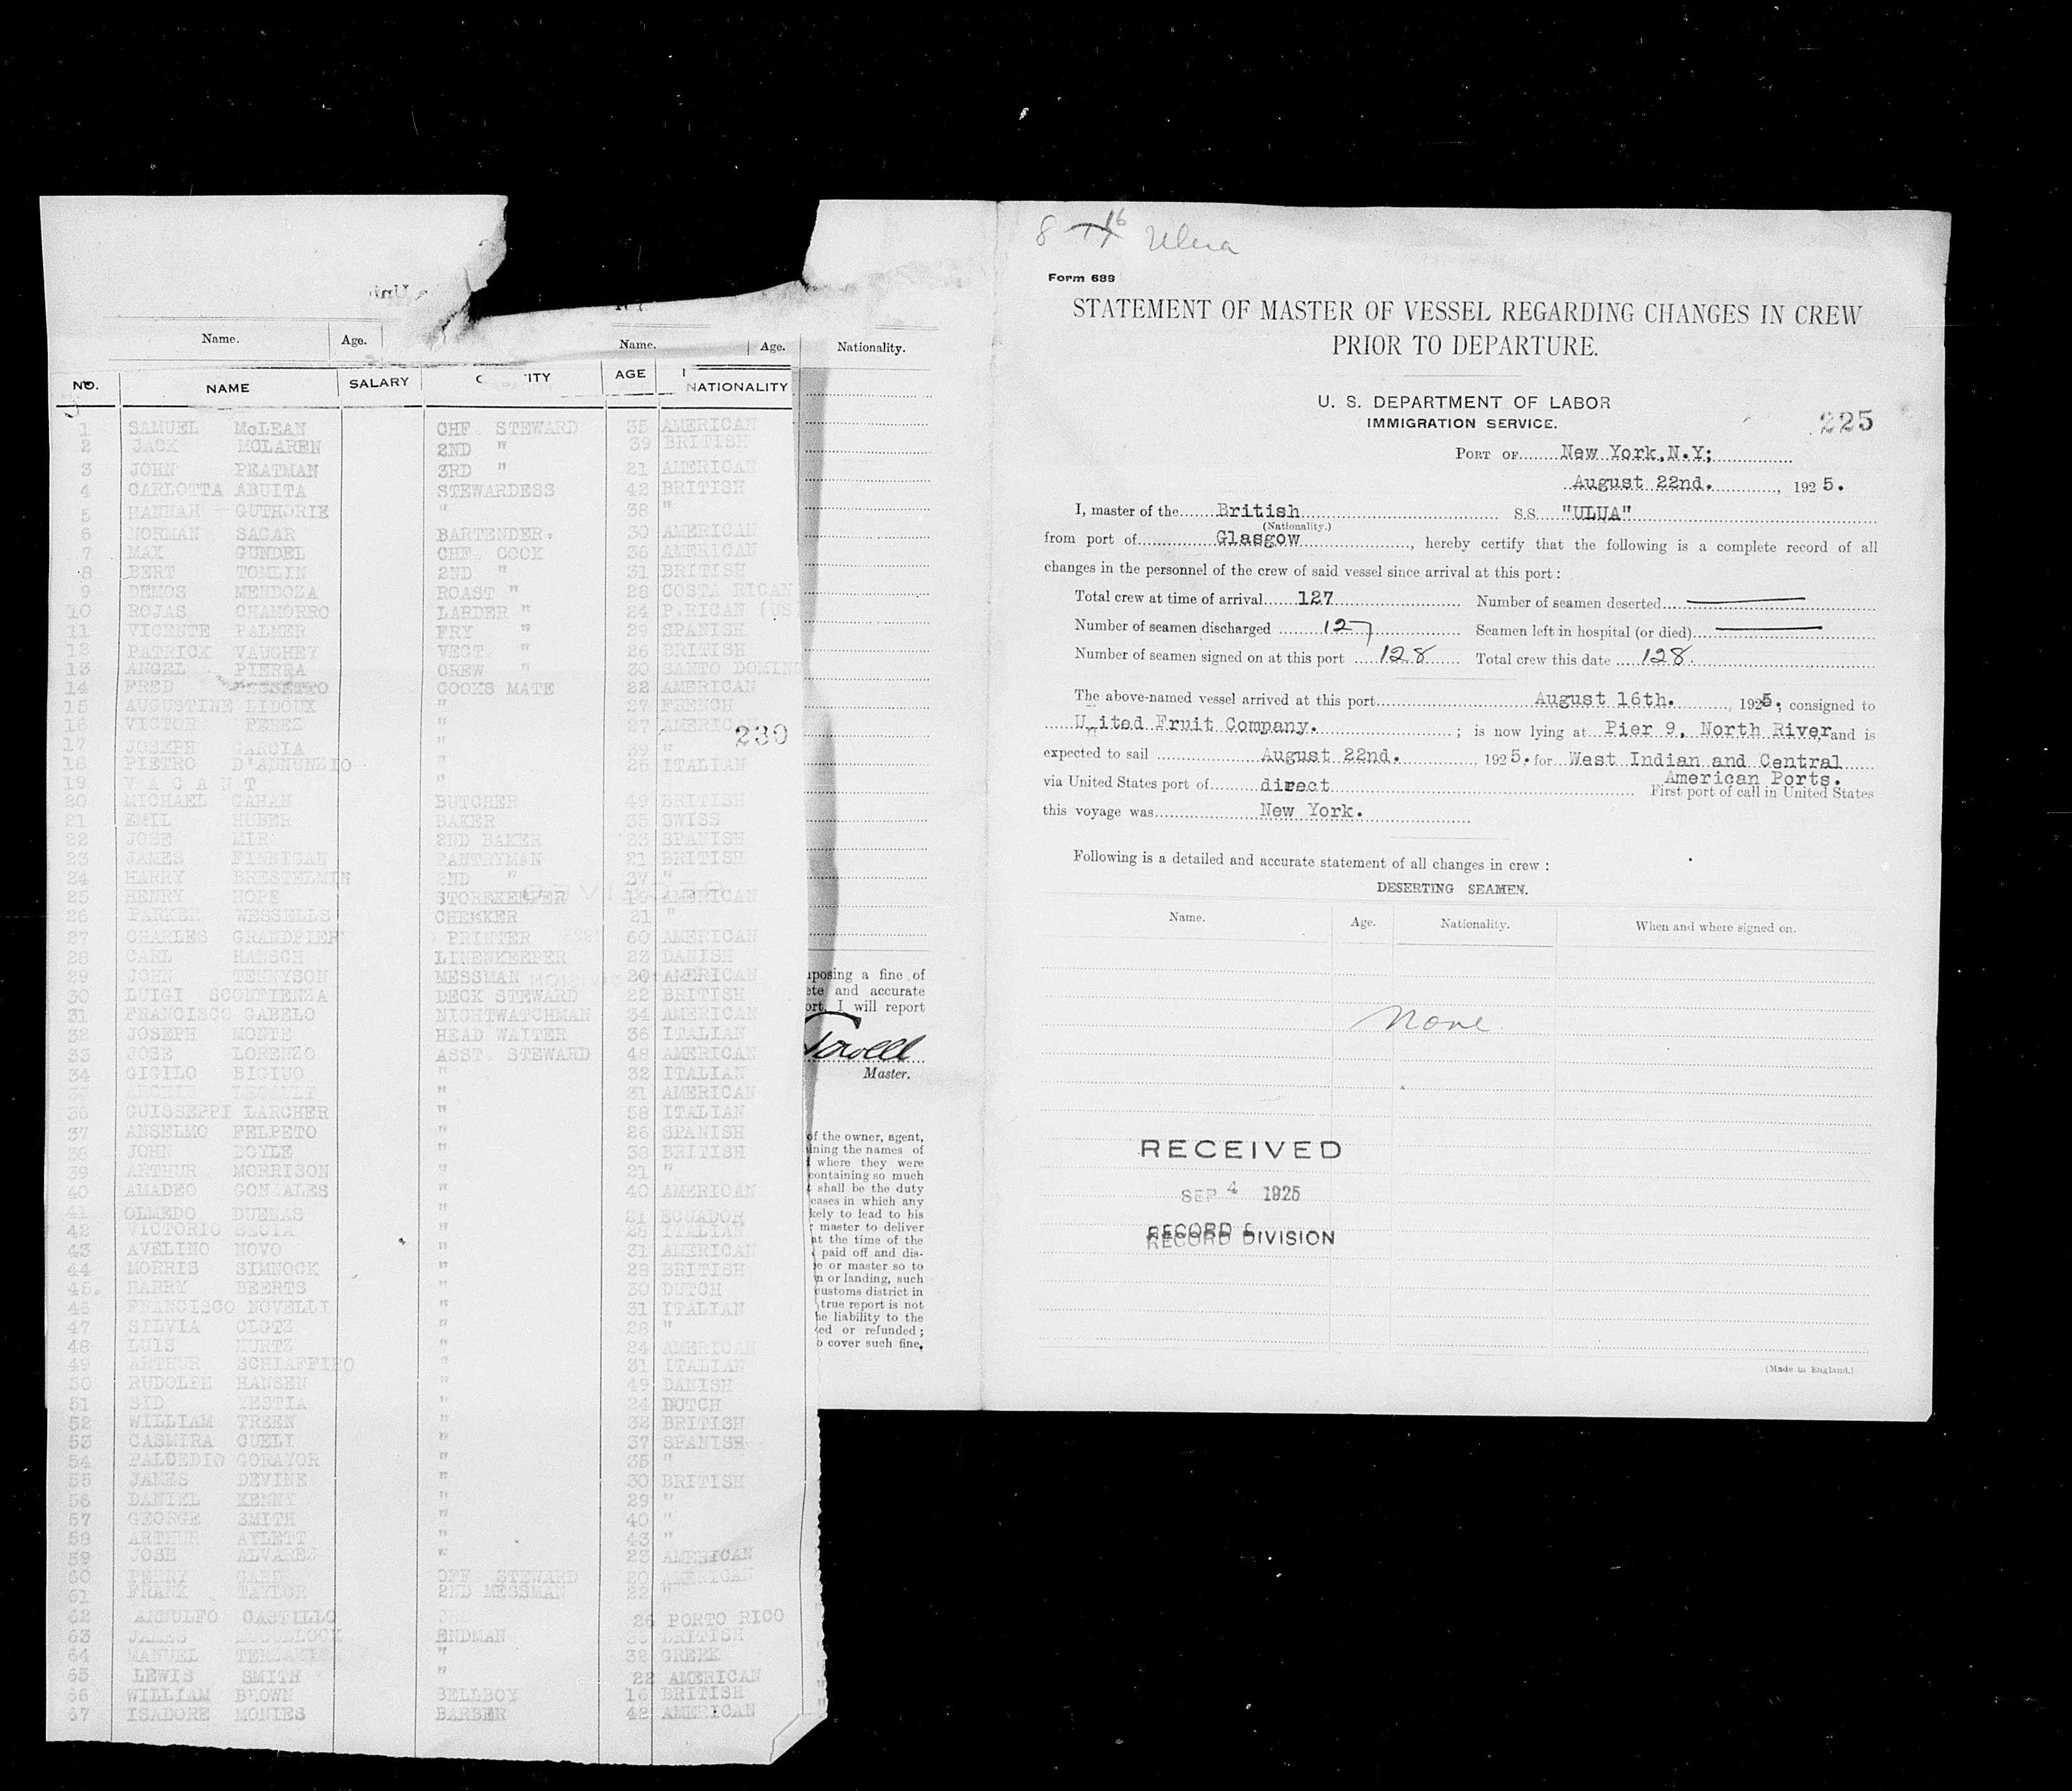 Name. Age. Name. Age. Nationality.
NO. NAME SALARY ITY AGE NATIONALITY
1 SAMUEL McLEAN CHF. STEWARD 35 AMERICAN
2 JACK MCLAREN 2ND " 39 BRITISH
3 JOHN PEATMAN 3RD " 21 AMERICAN
4 CARLOTTA ABUITA STEWARDESS 42 BRITISH
5 HANNAH GUTHORIE " 38 "
6 NORMAN SAGAR BARTENDER. 30 AMERICAN
7 MAX GUNDEL CHF. COOK 36 AMERICAN
8 BERT TOMLIN 2ND " 31 BRITISH
9 DEMOS MENDOZA ROAST " 28 COSTA RICAN
10 ROJAS CHAMORRO LARDER " 24 P.RICAN (US
11 VICENTE PALMER FRY " 29 SPANISH
12 PATRICK VAUGHEY VEGT " 26 BRITISH
13 ANGEL PIERRA CREW " 30 SANTO DOMING
14 FRED COOKS MATE 22 AMERICAN
15 AUGUSTINE LIDOUX " 27 FRENCH
16 VICTOR PEREZ " 27 AMERIC
230
17 JOSEPH GARCIA " 39 "
18 PIETRO D'ANNUNZIO " 25 ITALIAN
19 V A C A N T "
20 MICHAEL GAHAN BUTCHER 49 BRITISH
21 EMIL HUBER BAKER 35 SWISS
22 JOSE MIR 2ND BAKER 33 SPANISH
23 JAMES FINNIGAN PANTRYMAN 21 BRITISH
24 HARRY BRESTELMIN 2ND " 37 "
25 HENRY HOPE STOREKEEPER 19 AMERICAN
26 PARKER WESSELLS CHEMKER 21 "
27 CHARLES GRANDPIER PRINTER 60 AMERICAN
28 CARL HANSCH LINENKEEPER 23 DANISH
29 JOHN TENNYSON MESSMAN 20 AMERICAN
30 LUIGI SCONFIENZA DECK STEWARD 22 BRITISH
31 FRANCISCO GABELO NIGHTWATCHMAN 34 AMERICAN
32 JOSEPH MONTE HEAD WAITER 36 ITALIAN
33 JOSE LORENZO ASST. STEWARD 48 AMERICAN
34 GIGILO BIGIUO " 32 ITALIAN
35 " 31 AMERICAN
36 GUISSEPPI LARCHER " 58 ITALIAN
37 ANSELMO FELPETO " 26 SPANISH
38 JOHN DOYLE " 38 BRITISH
39 ARTHUR MORRISON " 21 "
40 AMADEO GONZALES " 40 AMERICAN
41 OLMEDO DUENAS " 21 ECUADOR
42 VICTORIO SECIA " 28 ITALIAN
43 AVELINO NOVO " 31 AMERICAN
44 MORRIS SIMNOCK " 28 BRITISH
45. HARRY BEERTS " 30 DUTCH
46 FRANCISCO NOVELLI " 31 ITALIAN
47 SILVIA CLOTZ " 28 "
48 LUIS KURTZ " 24 AMERICAN
49 ARTHUR SCHIAFFIFO " 31 ITALIAN
50 RUDOLFH HANSEN " 49 DANISH
51 SID YESTIA " 24 DOTCH
52 WILLIAM TREEN " 32 BRITISH
53 CASMIRA CUELI " 37 SPANISH
54 PALCEDIO GORAYOR " 35 "
55 JAMES DEVINE " 30 BRITISH
56 DANIEL KENNY " 29 "
57 GEORGE SMITH " 40 "
58 ARTHUR AYLETT " 43 "
59 JOSE ALVAREZ " 23 AMERICAN
60 PERRY GARD OFF. STEWARD 20 AMERICAN
61 FRANK TAYLOR 2ND MESSMAN 22 "
62 ARNULFO CASTILLO 26 PORTO RICO
63 JAMES ENDMAN BRITISH
64 MANUEL " 32 GREEK
65 LEWIS SMITH " 22 AMERICAN
66 WILLIAM BROWN BELLBOY 16 BRITISH
67 ISADORE MONIES BARBER 42 AMERICAN
posing a fine of
ete and accurate
ort, I will report
Master.
of the owner, agent,
ining the names of
where they were
containing so much
shall be the duty
cases in which any
kely to lead to his
master to deliver
at the time of the
paid off and dis-
e or master so to
n or landing, such
customs district in
true report is not
he liability to the
ed or refunded;
o cover such fine.
8 16 Ulua
Form 689
STATEMENT OF MASTER OF VESSEL REGARDING CHANGES IN CREW
PRIOR TO DEPARTURE.
U. S. DEPARTMENT OF LABOR
IMMIGRATION SERVICE.
225
PORT OF New York,N.Y;
August 22nd. , 1925.
I, master of the British S.S. "ULUA"
(Nationality.)
from port of Glasgow , hereby certify that the following is a complete record of all
changes in the personnel of the crew of said vessel since arrival at this port:
Total crew at time of arrival 127 Number of seamen deserted
Number of seamen discharged 127 Seamen left in hospital (or died)
Number of seamen signed on at this port 128 Total crew this date 128.
The above-named vessel arrived at this port August 16th. , 1925, consigned to
United Fruit Company. ; is now lying at Pier 9, North River and is
expected to sail August 22nd. , 1925. for West Indian and Central
American Ports.
via United States port of direct First port of call in United States
this voyage was New York.
Following is a detailed and accurate statement of all changes in crew:
DESERTING SEAMEN.
Name. Age. Nationality. When and where signed on.
None
RECEIVED
SEP 4 1925
RECORD DIVISION
(Made in England.)